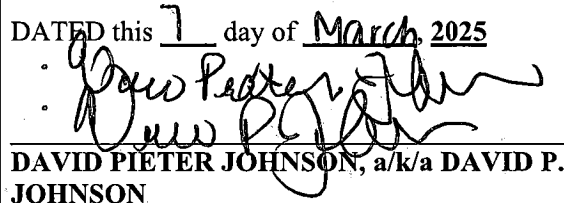 DATED this 7 day of March, 2025
David Pieter Johnson
David P. Johnson
DAVID PIETER JOHNSON, a/k/a DAVID P.
JOHNSON